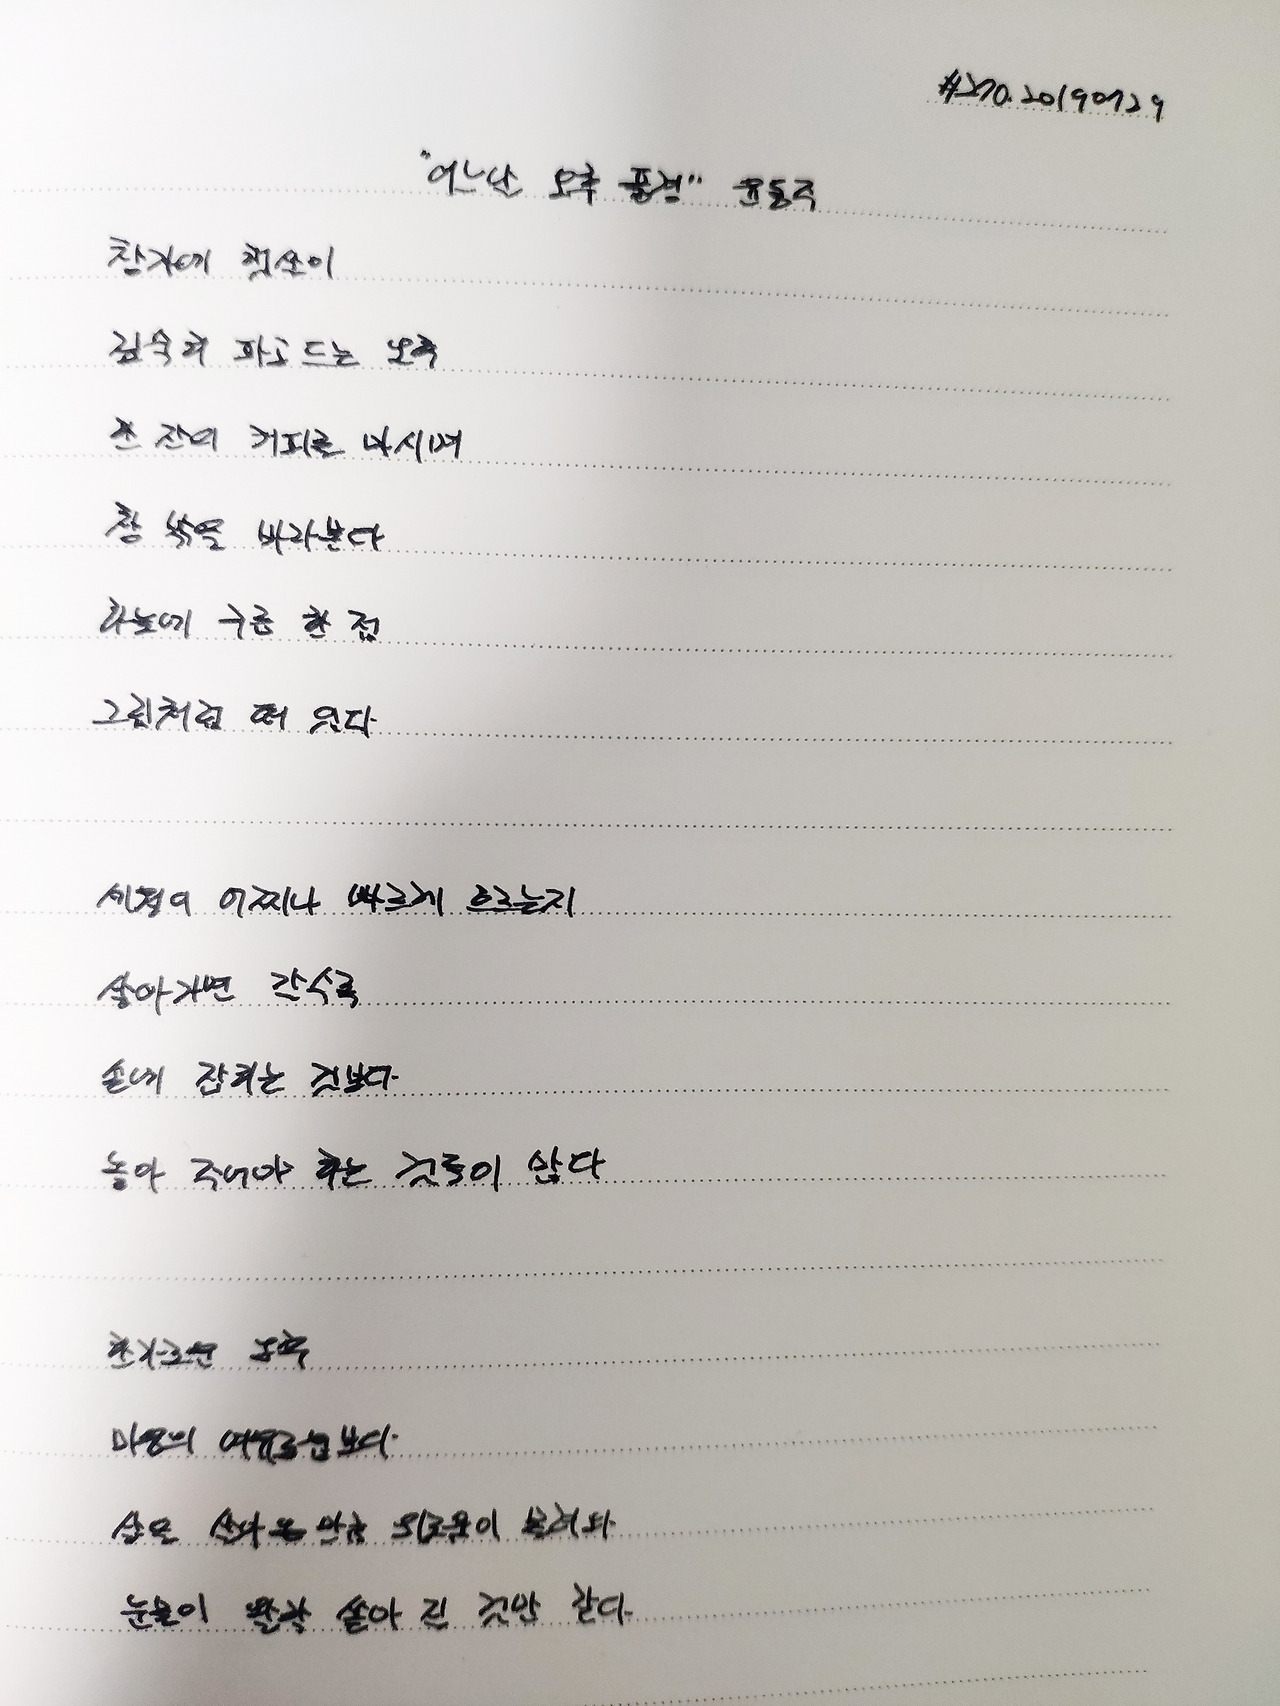 #270. 20190729
"어느날 오후 풍경" 윤동주
창가에 햇살이
깊숙히 파고드는 오후
한 잔의 커피를 마시며
창 밖을 바라본다
하늘에 구름 한 점
그림처럼 떠 있다
세월이 어찌나 빠르게 흐르는지
살아가면 갈수록
손에 잡히는 것보다
놓아 주어야 하는 것들이 많다
한가로운 오후
마음의 여유로움보다
삶을 살아온 만큼 외로움이 몰려와
눈물이 왈칵 쏟아 진 것만 같다